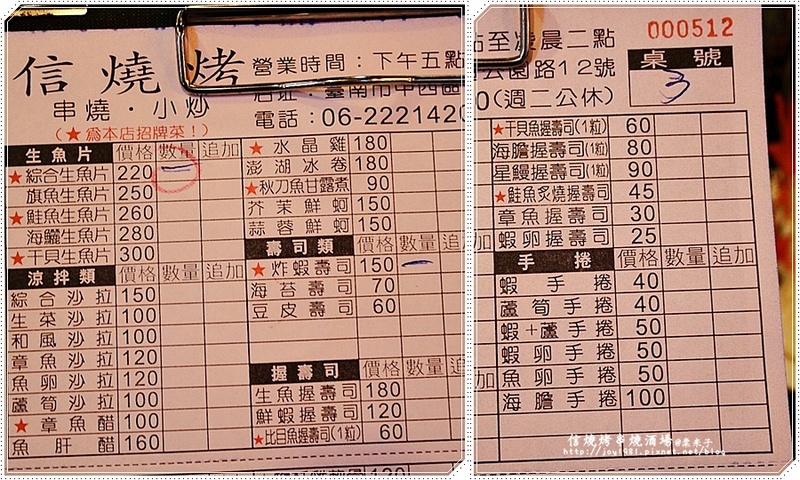 信燒烤
串燒・小炒
(★為本店招牌菜!)
營業時間:下午五點
電話:06-2221420
生魚片 價格 數量 追加
★綜合生魚片 220 一
旗魚生魚片 250
★鮭魚生魚片 260
海鱺生魚片 280
★干貝生魚片 300
涼拌類 價格 數量 追加
綜合沙拉 150
生菜沙拉 100
和風沙拉 100
章魚沙拉 120
魚卵沙拉 120
蘆筍沙拉 100
★章魚醋 100
魚肝醋 160
★水晶雞 180
澎湖冰卷 180
★秋刀魚甘露煮 90
芥茉鮮蚵 150
蒜蓉鮮蚵 150
壽司類 價格 數量 追加
★炸蝦壽司 150 一
海苔壽司 70
豆皮壽司 60
握壽司 價格 數量 追加
生魚握壽司 180
鮮蝦握壽司 120
★比目魚握壽司(1粒) 60
000512
點至凌晨二點
公園路12號
0(週二公休)
桌號
3
★干貝魚握壽司(1粒) 60
海膽握壽司(1粒) 80
星鰻握壽司(1粒) 90
★鮭魚炙燒握壽司 45
章魚握壽司 30
蝦卵握壽司 25
手捲 價格 數量 追加
蝦手捲 40
蘆筍手捲 40
蝦+蘆手捲 50
蝦卵手捲 50
魚卵手捲 50
海膽手捲 100
信燒烤串燒酒場@栗米子
http://joy1981.pixnet.net/blog